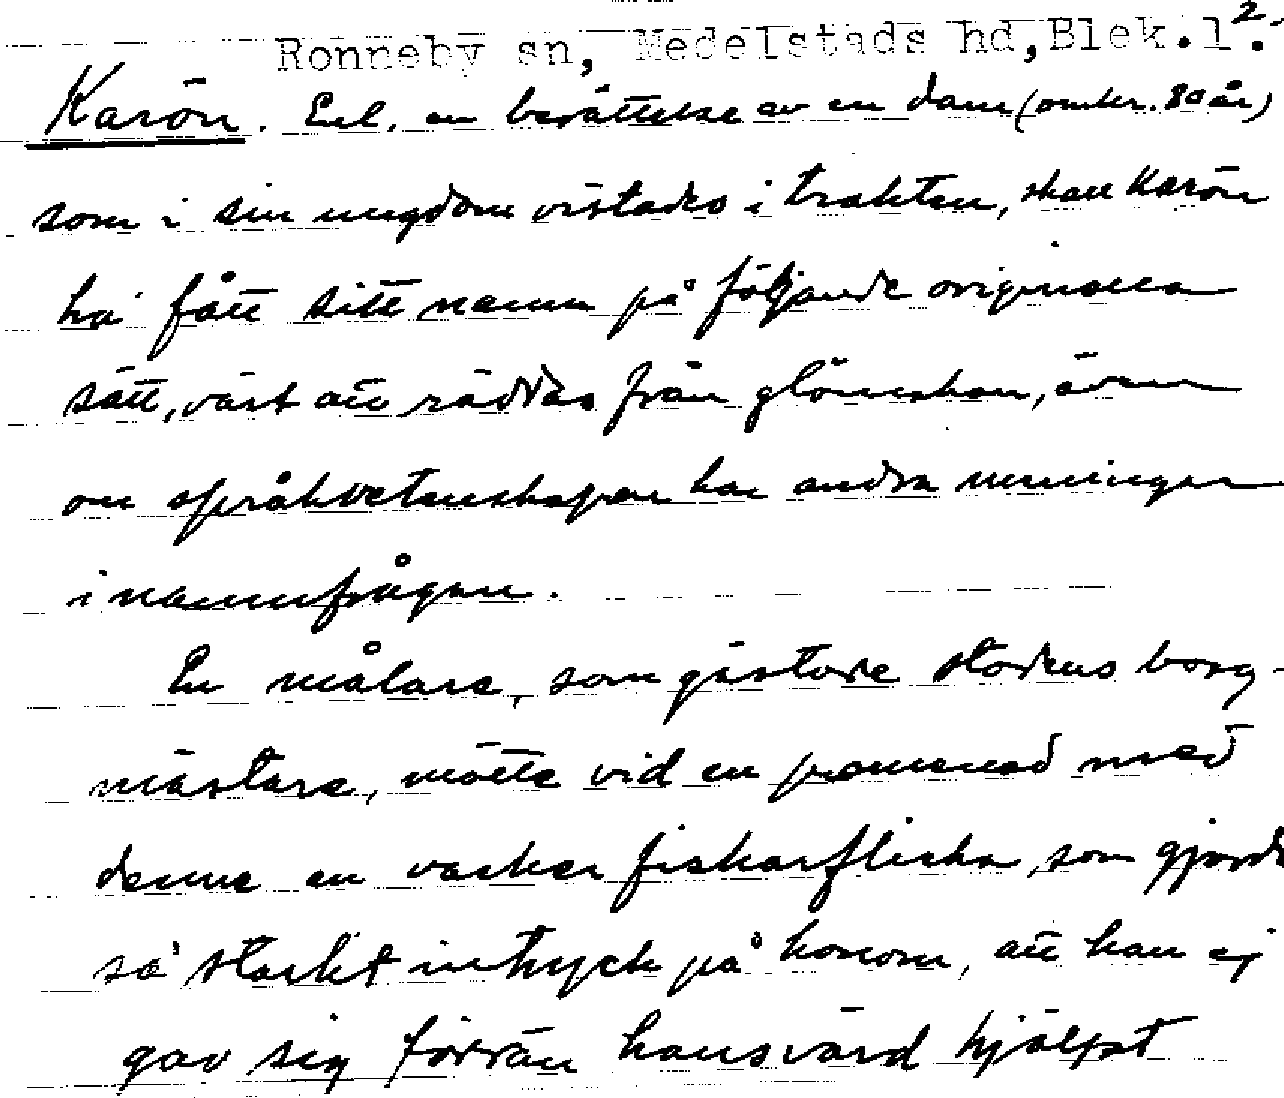 2.
Ronneby sn, Medelstads hd, Blek.l.
Karön. Enl. en berättelse av en dam (omkr. 80 år)
som i sin ungdom vistades i trakten, skall Karön
ha fått sitt namn på följande originella
sätt, värt att räddas från glömskan, även
om språkvetenskapen har andra meningar
i namnfrågan.
En målare, som gästade stadens borg-
mästare, mötte vid en promenad med
denne en vacker fiskarflicka, som gjorde
så starkt intryck på honom, att han ej
gav sig förrän hans värd hjälpt